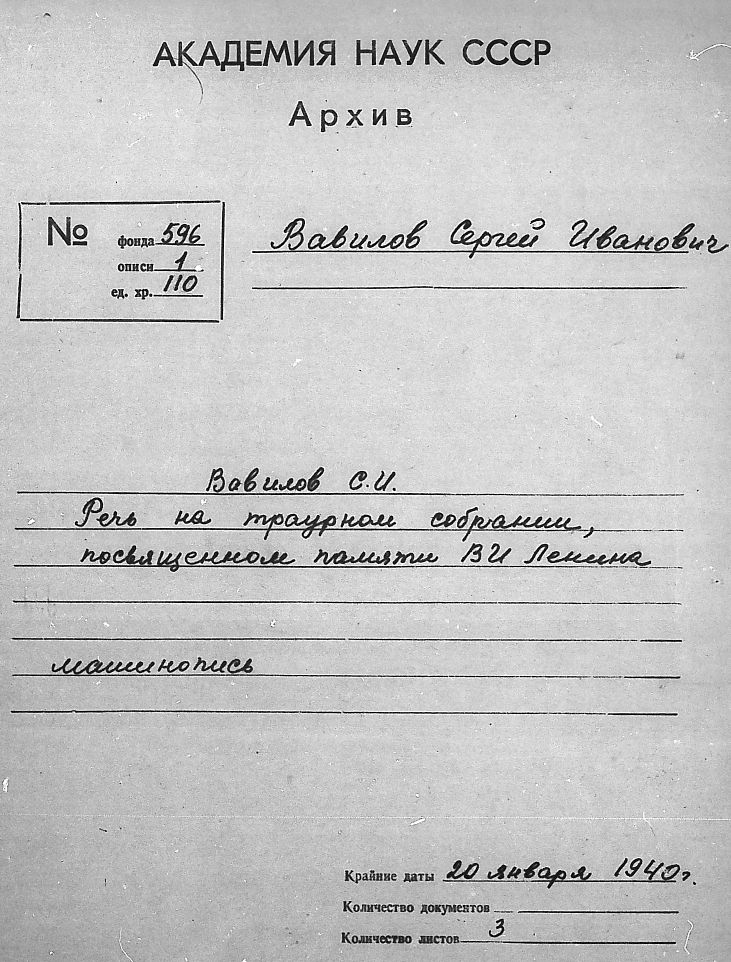 АКАДЕМИЯ НАУК СССР
Архив
№ фонда 596
описи 1
ед. хр. 110
Вавилов Сергей Иванович
Вавилов С.И.
Речь на траурном собрании,
посвященном памяти ВИ Ленина
машинопись
Крайние даты 20 января 1940г.
Количество документов
Количество листов 3